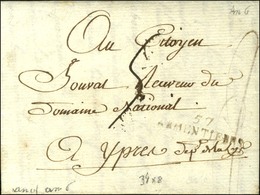 An 6
Au Citoyen
Jouval Receveur du
Domaine National
57
ARMENTIERES
A Ypres dept. de la Lys
34x8